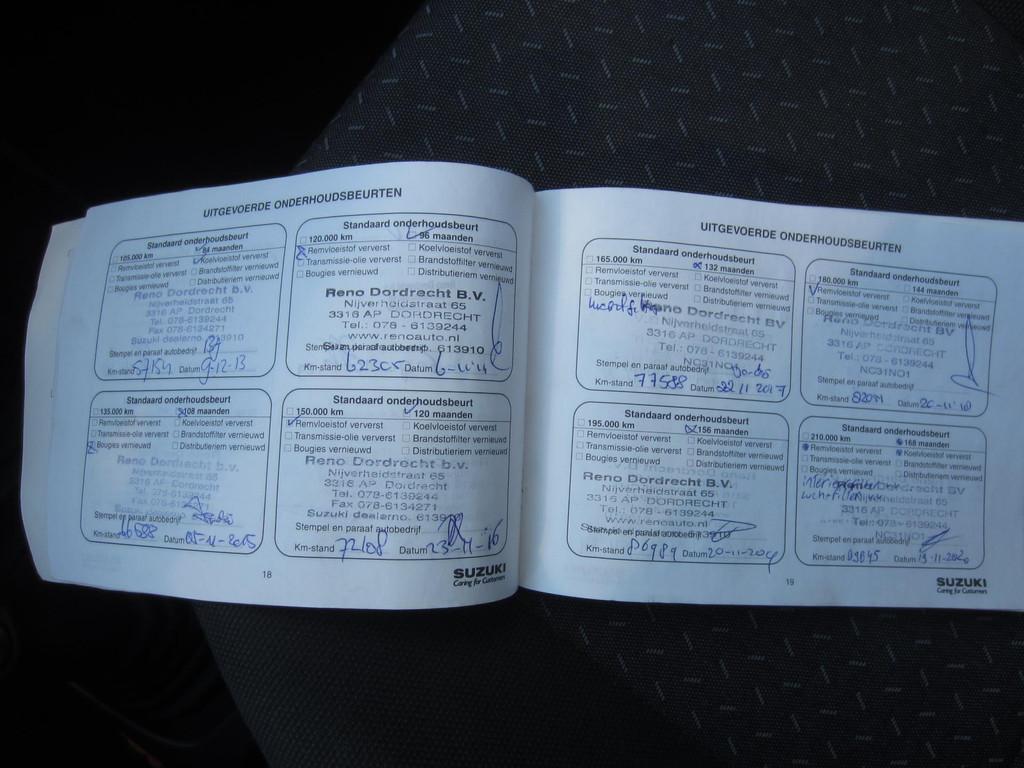 UITGEVOERDE ONDERHOUDSBEURTEN
Standaard onderhoudsbeurt
105.000 km 84 maanden
Remvloeistof ververst Koelvloeistof ververst
Transmissie-olie ververst Brandstoffilter vernieuwd
Bougies vernieuwd
Reno Dordrecht B.V.
Nijverheidstraat 65
3316 AP DORDRECHT
Tel. 078-6139244
Fax 078-6134271
Suzuki dealerno. 613910
Stempel en paraaf autobedrijf
Km-stand 57154 Datum 9-12-13
Standaard onderhoudsbeurt
120.000 km 96 maanden
Remvloeistof ververst Koelvloeistof ververst
Transmissie-olie ververst Brandstoffilter vernieuwd
Bougies vernieuwd Distributieriem vernieuwd
Reno Dordrecht B.V.
Nijverheidstraat 65
3316 AP DORDRECHT
Tel.: 078 - 6139244
www.renoauto.nl
613910
Km-stand Datum 6-11-14
Standaard onderhoudsbeurt
135.000 km 108 maanden
Remvloeistof ververst Koelvloeistof ververst
Transmissie-olie ververst Brandstoffilter vernieuwd
Bougies vernieuwd Distributieriem vernieuwd
Reno Dordrecht b.v.
Nijverheidstraat 65
3316 AP Dordrecht
Tel. 078-6139244
Fax 078-6134271
Stempel en paraaf autobedrijf
Km-stand Datum 05-11-2015
Standaard onderhoudsbeurt
150.000 km 120 maanden
Remvloeistof ververst Koelvloeistof ververst
Transmissie-olie ververst Brandstoffilter vernieuwd
Bougies vernieuwd Distributieriem vernieuwd
Reno Dordrecht b.v.
Nijverheidstraat 65
3316 AP Dordrecht
Tel. 078-6139244
Fax 078-6134271
Suzuki dealerno. 613910
Stempel en paraaf autobedrijf
Km-stand 72108 Datum 23-11-16
18
SUZUKI
Caring for Customers
UITGEVOERDE ONDERHOUDSBEURTEN
Standaard onderhoudsbeurt
165.000 km 132 maanden
Remvloeistof ververst Koelvloeistof ververst
Transmissie-olie ververst Brandstoffilter vernieuwd
Bougies vernieuwd Distributieriem vernieuwd
Reno Dordrecht BV
Nijverheidstraat 65
3316 AP DORDRECHT
Tel.: 078 - 6139244
NC31NO1
Stempel en paraaf autobedrijf
Km-stand 77588 Datum 22 11 2017
Standaard onderhoudsbeurt
180.000 km 144 maanden
Remvloeistof ververst Koelvloeistof ververst
Transmissie-olie ververst Brandstoffilter vernieuwd
Bougies vernieuwd Distributieriem vernieuwd
Reno Dordrecht BV
Nijverheidstraat 65
3316 AP DORDRECHT
Tel.: 078 - 6139244
NC31NO1
Stempel en paraaf autobedrijf
Km-stand Datum 20-11-18
Standaard onderhoudsbeurt
195.000 km 156 maanden
Remvloeistof ververst Koelvloeistof ververst
Transmissie-olie ververst Brandstoffilter vernieuwd
Bougies vernieuwd Distributieriem vernieuwd
Reno Dordrecht B.V.
Nijverheidstraat 65
3316 AP DORDRECHT
Tel.: 078 - 6139244
www.renoauto.nl
Km-stand 86989 Datum
Standaard onderhoudsbeurt
210.000 km 168 maanden
Remvloeistof ververst Koelvloeistof ververst
Transmissie-olie ververst Brandstoffilter vernieuwd
Bougies vernieuwd
Nijverheidstraat 65
3316 AP DORDRECHT
Tel.: 078 - 6139244
NC31NO1
Stempel en paraaf autobedrijf
Km-stand Datum 19-11-2020
19
SUZUKI
Caring for Customers